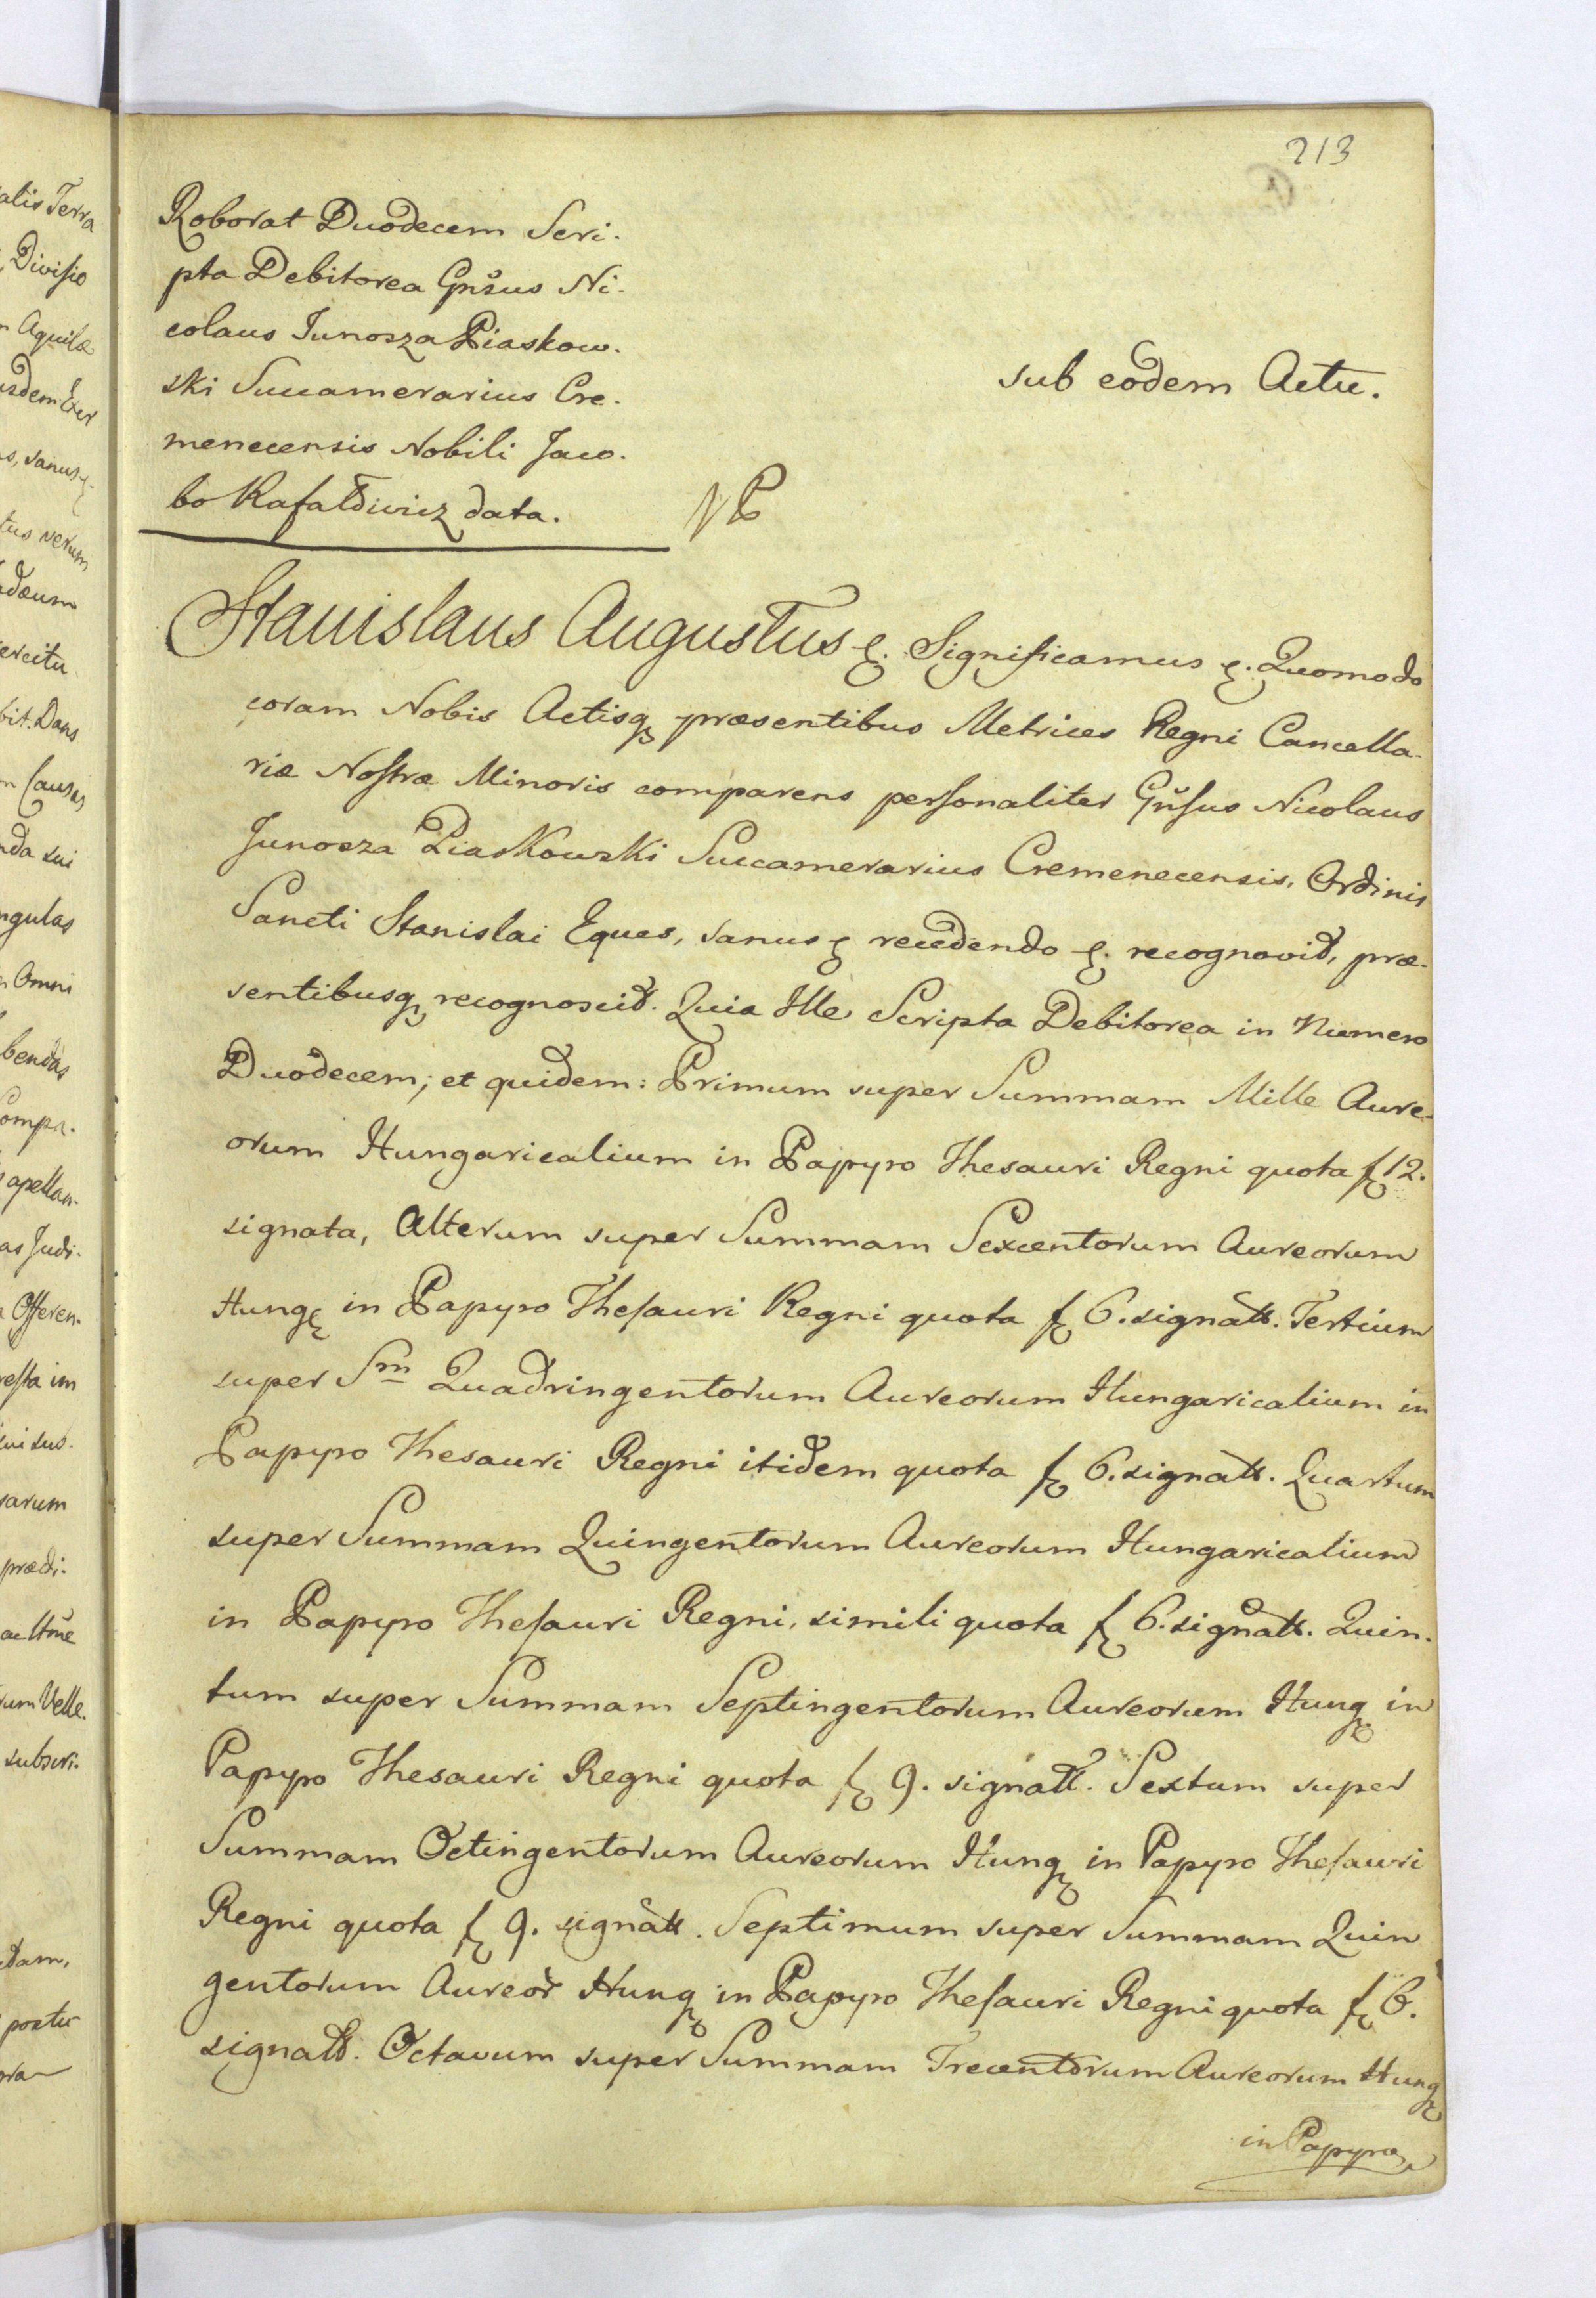 213
Roborat Duodecem Scri-
pta Debitorea Gnsus Ni-
colaus Junosza Piaskow-
ski Succamerarius Cre-
menecensis Nobili Jaco-
bo Rafałowicz data.
sub eodem Actu.
Stanislaus Augustus &. Significamus &. Quomodo
coram Nobis Actisq praesentibus Metrices Regni Cancella-
riæ Nostræ Minoris comparens personaliter Gnsus Nicolaus
Junosza Piaskowski Succamerarius Cremenecensis, Ordinis
Sancti Stanislai Eques, sanus & recedendo &. recognovit, præ-
sentibusq recognoscit. Quia Ille Scripta Debitorea in Numero
Duodecem; et quidem: Primum super Summam Mille Aure-
orum Hungaricalium in Papyro Thesauri Regni quota f 12.
signata, Alterum super Summam Sexcentorum Aureorum
Hung in Papyro Thesauri Regni quota f 6. signatt. Tertium
super Sm Quadringentorum Aureorum Hungaricalium in
Papyro Thesauri Regni itidem quota f 6. signatt. Quartum
super Summam Quingentorum Aureorum Hungaricalium
in Papyro Thesauri Regni, simili quota f 6. signatt. Quin-
tum super Summam Septingentorum Aureorum Hung in
Papyro Thesauri Regni quota f 9. signatt. Sextum super
Summam Octingentorum Aureorum Hung in Papyro Thesauri
Regni quota f 9. signatt. Septimum super Summam Quin
gentorum Aureor Hung in Papyro Thesauri Regni quota f 6.
signatt. Octavum super Summam Trecentorum Aureorum Hung
in Papyro